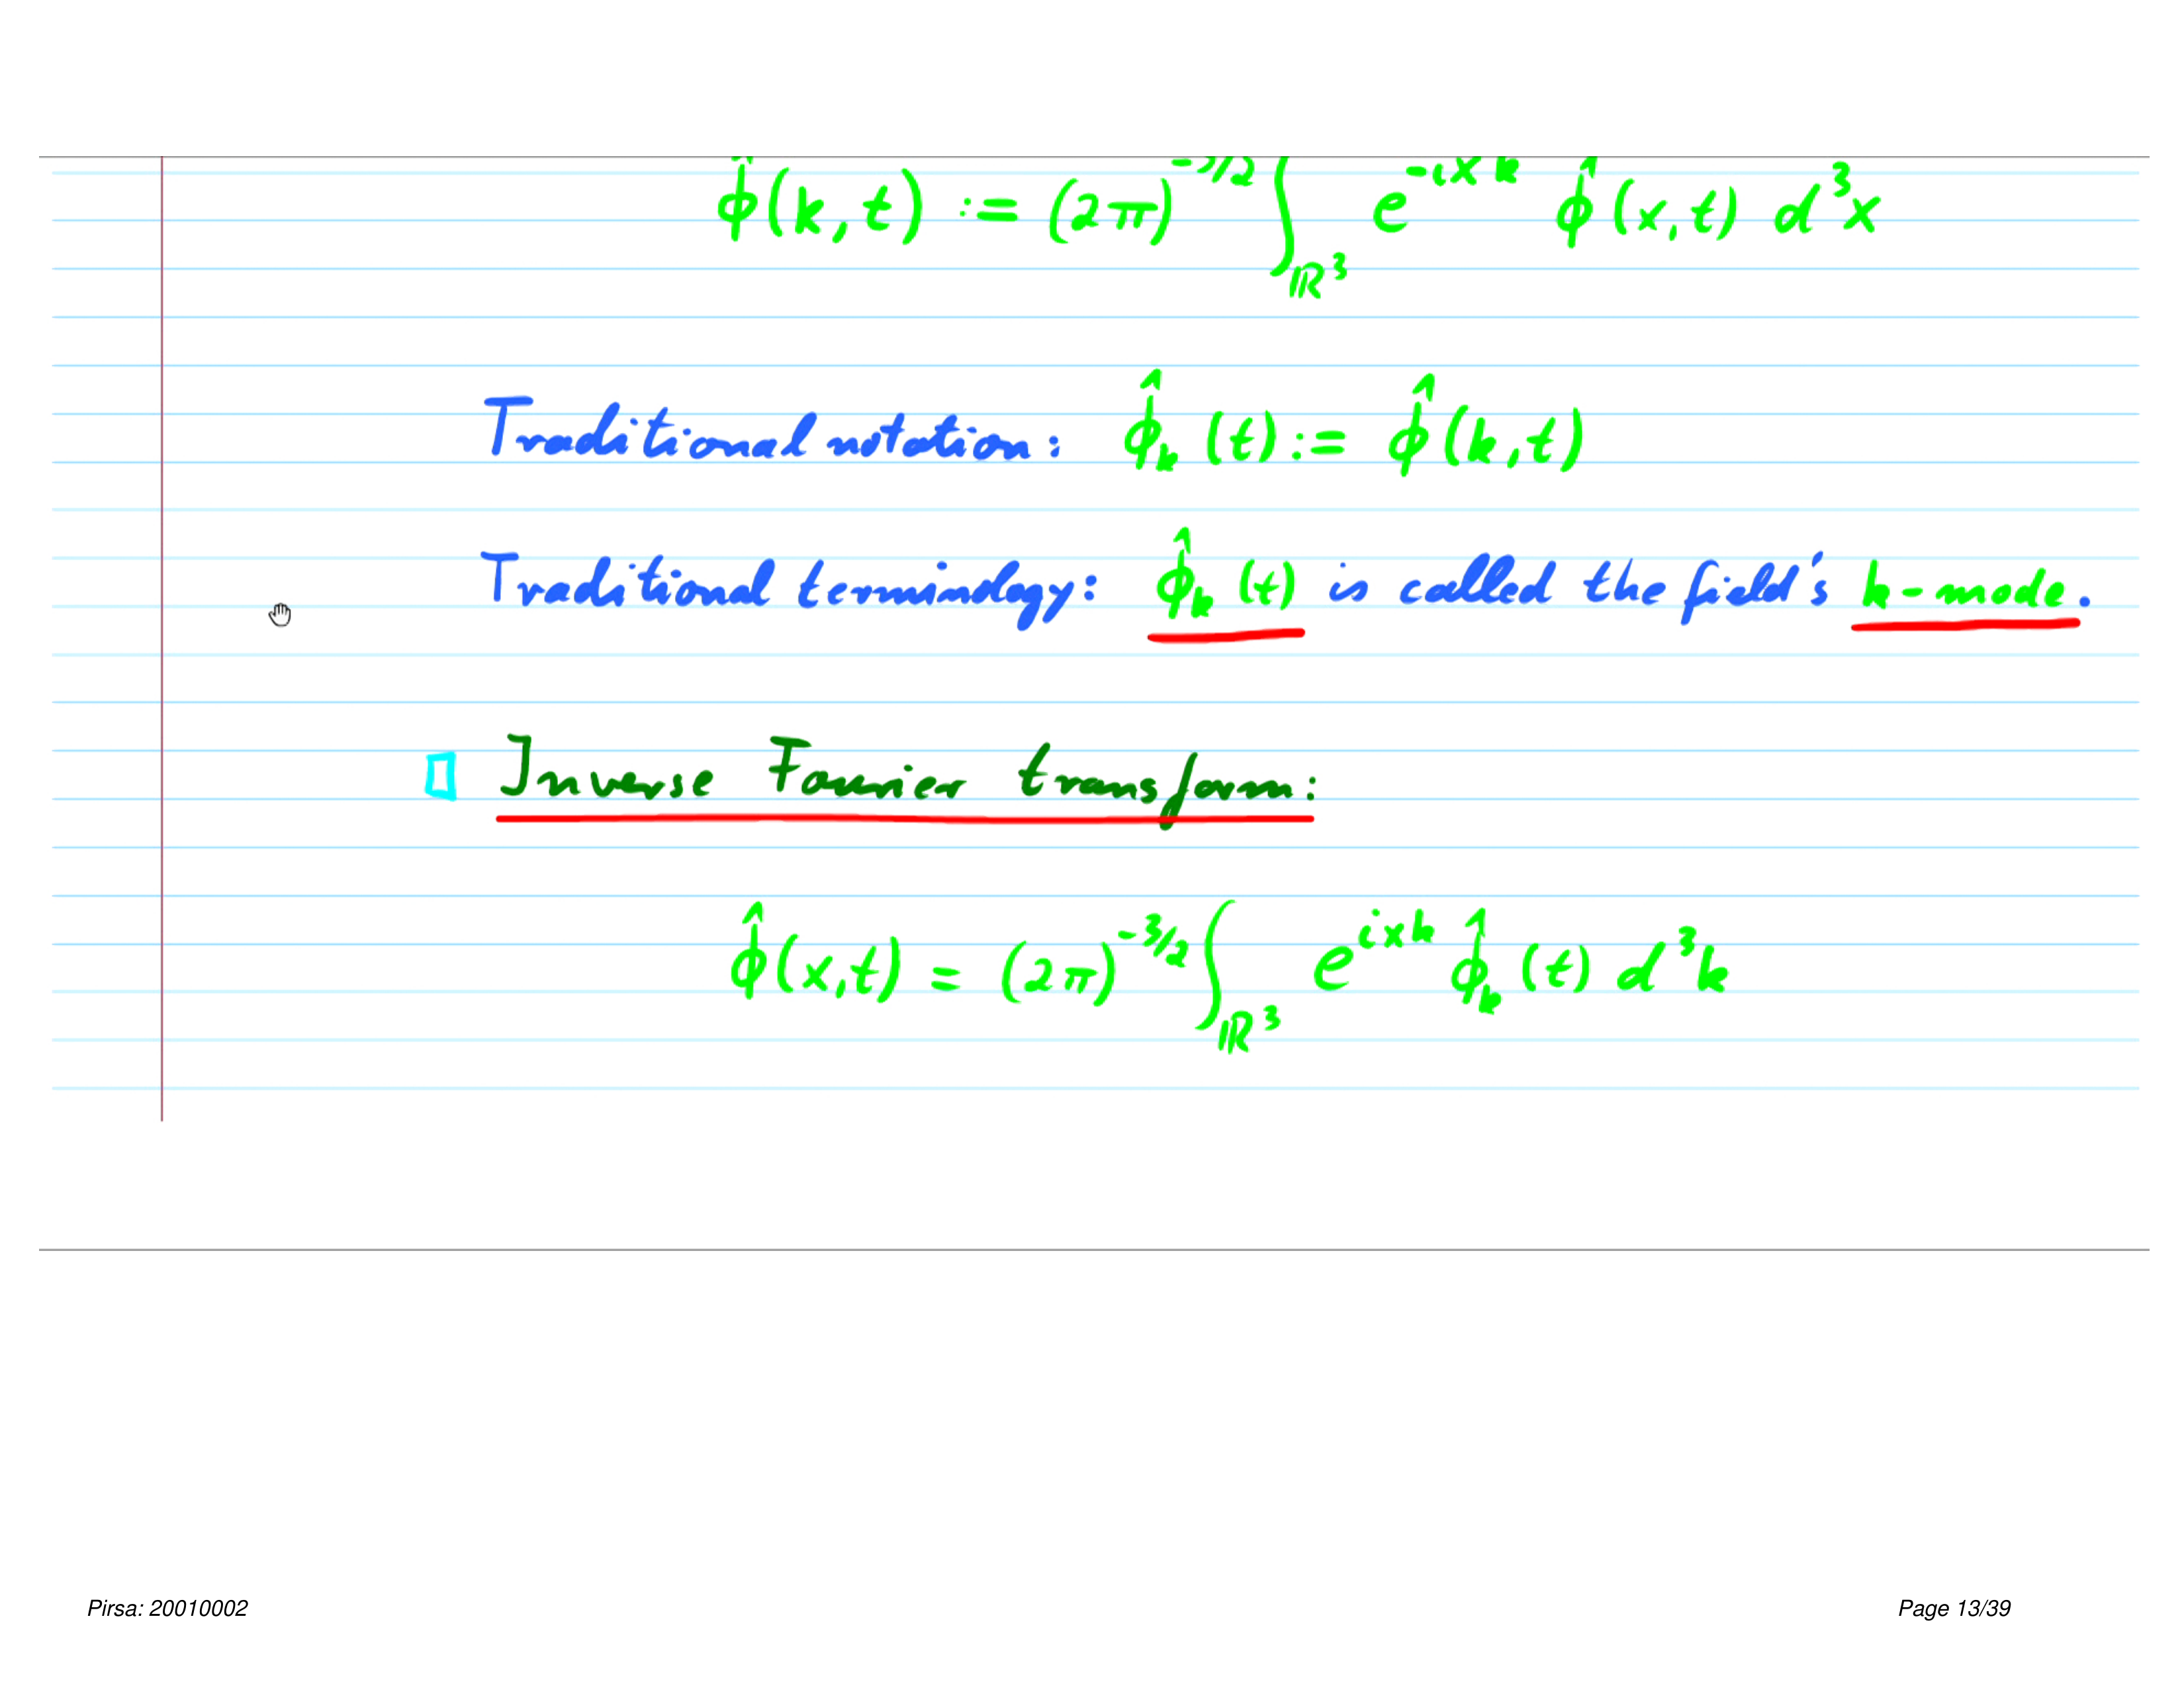 φ̂(k,t) := (2π)^{-3/2} ∫_{ℝ³} e^{-ixk} φ̂(x,t) d³x
Traditional notation: φ̂_k(t) := φ̂(k,t)
Traditional terminology: φ̂_k(t) is called the field's k-mode.
Inverse Fourier transform:
φ̂(x,t) = (2π)^{-3/2} ∫_{ℝ³} e^{ixk} φ̂_k(t) d³k
Pirsa: 20010002
Page 13/39